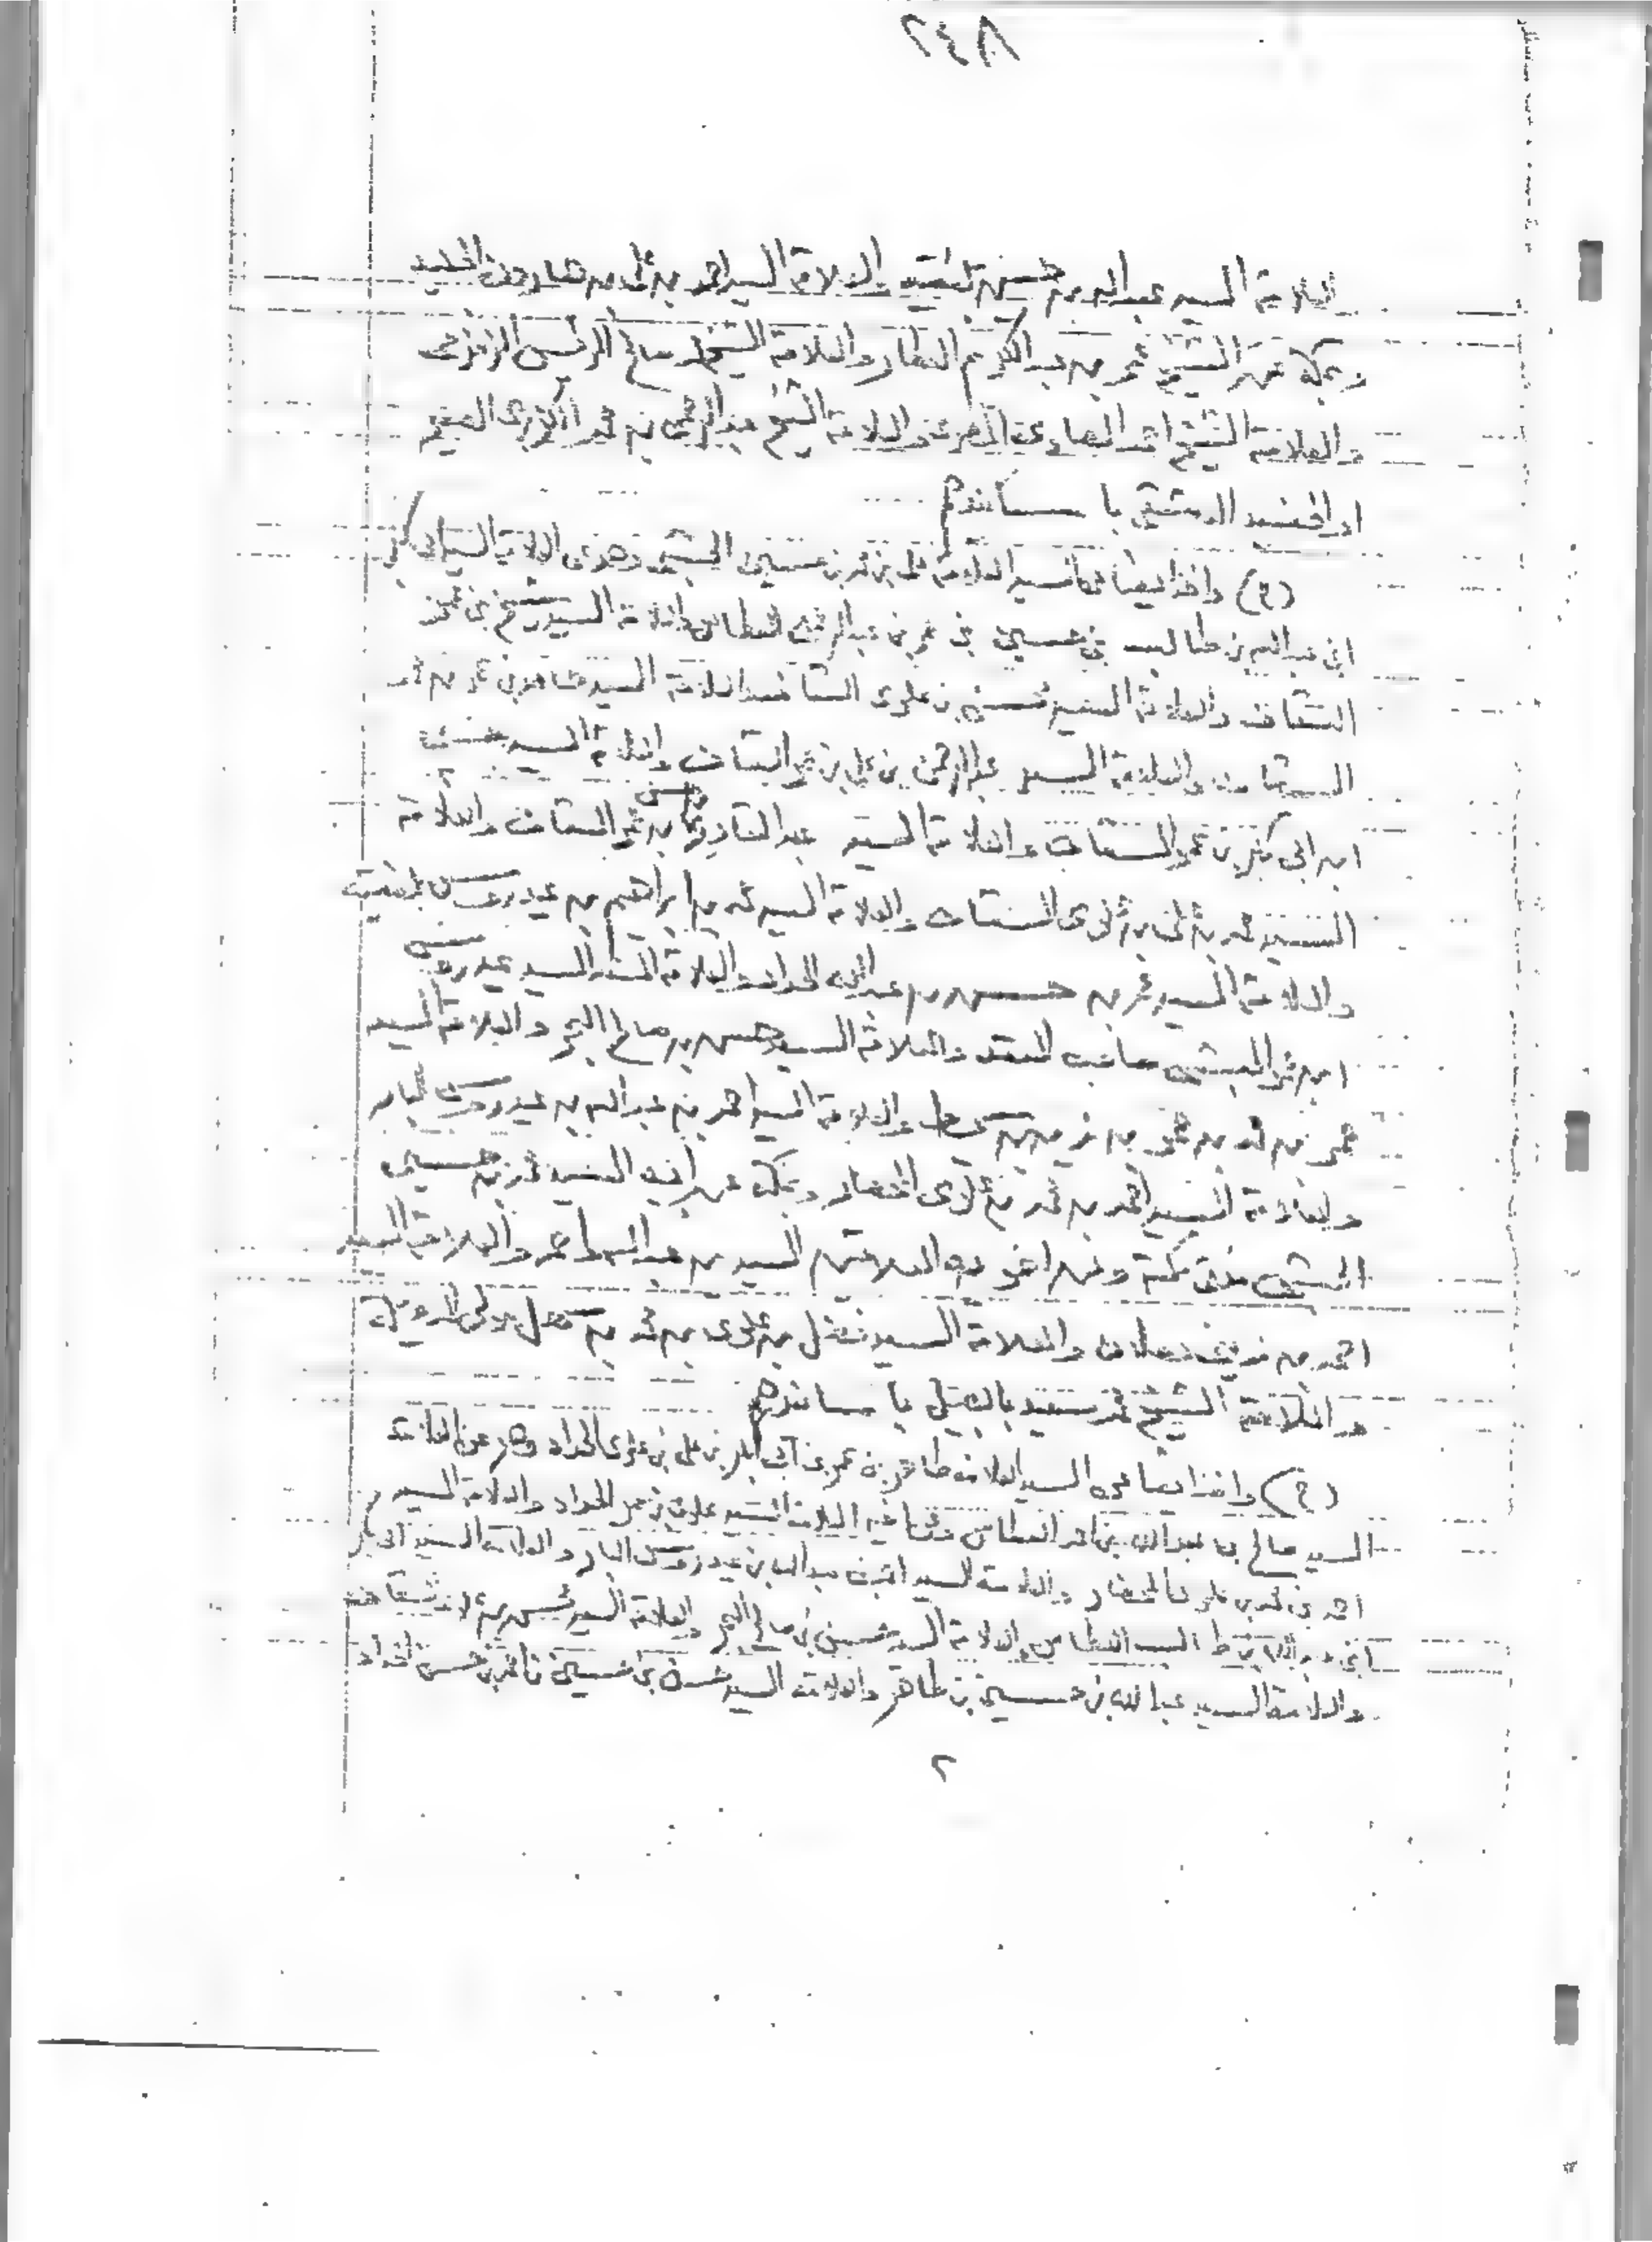 ٢٤٨
العلامة السيد عبد الله بن حسين بلفقيه والعلامة السيد احمد بن علي بن هارون الجنيد
وبمكة عن الشيخ عمر بن عبد الكريم العطار والعلامة الشيخ محمد صالح الرئيس الزمزمي
والعلامة الشيخ احمد الصاوي المصري والعلامة الشيخ عبد الرحمن بن محمد الكزبري الصغير
او الحفيد الدمشقي با سانيدهم
(ح) واخذ ايضا عن السيد العلامة علي بن محمد بن حسين الحبشي وهو عن العلامة السيد ابي بكر
ابن عبد الله بن طالب بن حسين بن عمر بن عبد الرحمن العطاس والعلامة السيد شيخ بن عمر
السقاف والعلامة السيد محسن بن علوي السقاف والعلامة السيد حامد بن عمر بن محمد
السقاف والعلامة السيد عبد الرحمن بن علي بن عمر السقاف والعلامة السيد
ابن ابي بكر بن عمر السقاف والعلامة السيد عبد القادر بن حسن بن عمر السقاف والعلامة
السيد محمد بن علي بن علوي السقاف والعلامة السيد محمد بن ابراهيم بن عيدروس بلفقيه
والعلامة السيد عمر بن حسن بن عبد الله الحداد والعلامة المسند السيد عيدروس
ابن عمر الحبشي صاحب العقد والعلامة السيد حسن بن صالح البحر والعلامة السيد
عمر بن محمد بن عمر بن زين بن سميط والعلامة السيد احمد بن عبد الله بن عيدروس البار
والعلامة السيد احمد بن محمد بن علوي المحضار وبمكة عن ابيه السيد محمد بن حسين
الحبشي مفتي مكة وعن اخويه العلامتين السيد بن عبد الله وا عمر والعلامة السيد
احمد بن زيني دحلان والعلامة السيد فضل بن علوي بن محمد بن سهل مولى الدويلة
والعلامة الشيخ محمد سعيد بابصيل با سانيدهم
(ح) واخذ ايضا عن السيد العلامة طاهر بن عمر بن ابي بكر بن علي بن علوي الحداد وهو عن العلامة
السيد صالح بن عبد الله بن احمد العطاس و العلامة السيد علوي بن عمر الحداد والعلامة السيد
احمد بن محمد بن علوي المحضار والعلامة السيد احمد بن عبد الله بن عيدروس البار والعلامة السيد ابي بكر
ابن عبد الله بن طالب العطاس والعلامة السيد حسن بن صالح البحر والعلامة السيد محسن بن علوي السقاف
والعلامة السيد عبد الله بن حسين بن طاهر والعلامة السيد حسن بن حسين بن احمد بن حسن الحداد
٢